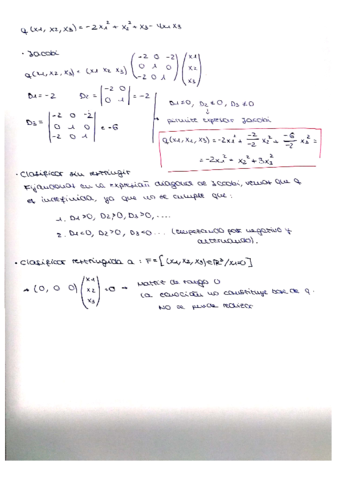 q(x1, x2, x3) = -2x1² + x2² + x3² - 4x1x3
· Jacobi
q(x1, x2, x3) = (x1 x2 x3) (-2 0 -2
0 1 0
-2 0 1) (x1
x2
x3)
D1 = -2 D2 = |-2 0
0 1| = -2
D1≠0, D2≠0, D3≠0
↓
permite expresar Jacobi
D3 = |-2 0 -2
0 1 0
-2 0 1| = -6
q(x1, x2, x3) = -2x1² + -2/-2 x2² + -6/-2 x3² =
= -2x1² + x2² + 3x3²
· Clasificar sin restringir
Fijándonos en la expresión diagonal de Jacobi, vemos que q
es indefinida, ya que no se cumple que:
1. D1>0, D2>0, D3>0, ....
2. D1<0, D2>0, D3<0... (empezando por negativo y
alternando).
· Clasificar restringida a: F = [(x1, x2, x3)∈R³/x1=0]
→ (0, 0, 0) (x1
x2
x3) = 0 → Matriz de rango 0
La condición no constituye base de q.
No se puede reducir